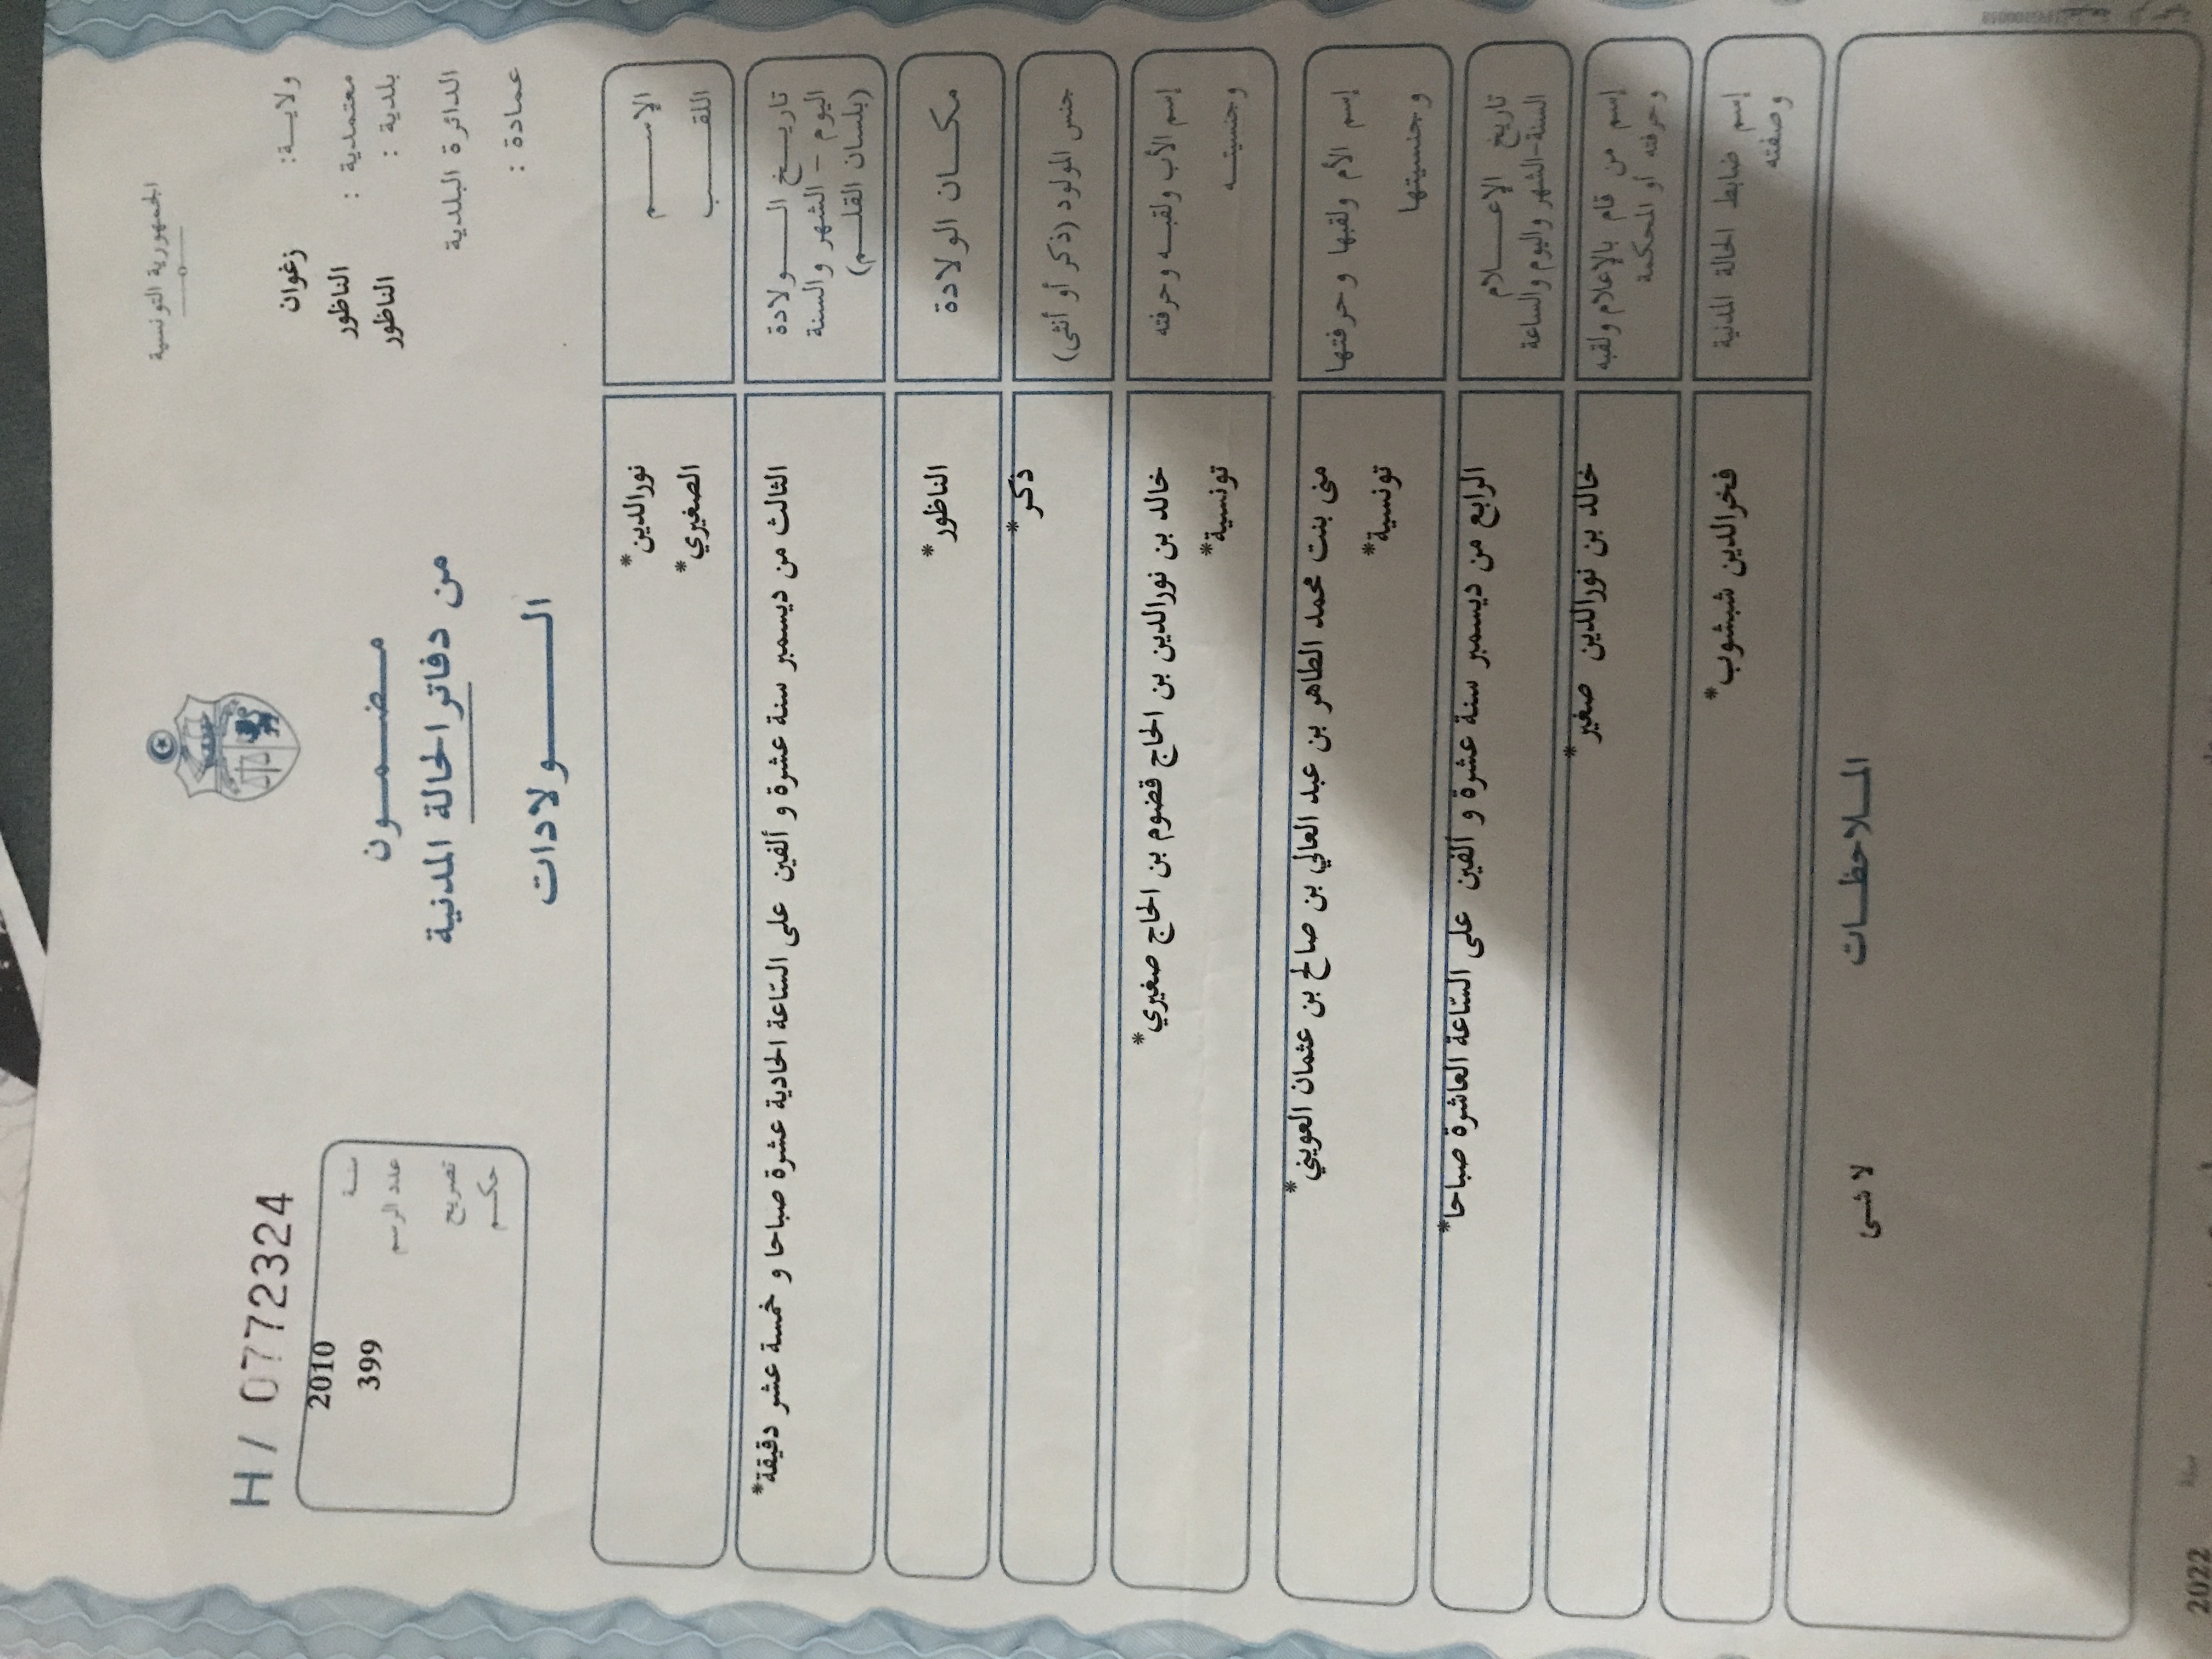 الجمهورية التونسية
H / 0772324
ولايـــة: زغوان
معتمدية : الناظور
بلدية : الناظور
الدائرة البلدية
عمادة :
سنة 2010
عدد الرسم 399
تصريح
حكم
مـضـمــون
من دفاتر الحالة المدنية
الـــولادات
الإســـــم نورالدين*
اللقـــب الصغيري*
تاريــخ الـــولادة الثالث من ديسمبر سنة عشرة و ألفين على السّاعة الحادية عشرة صباحا و خمسة عشر دقيقة*
اليوم - الشهر والسنة
(بلسان القلـــم)
مكـــان الولادة الناظور*
جنس المولود (ذكر أو أنثى) ذكر*
إسم الأب ولقبـه وحرفته خالد بن نورالدين بن الحاج قضوم بن الحاج صغيري*
وجنسيتـــه تونسية*
إسم الأم ولقبها وحرفتها منى بنت محمد الطاهر بن عبد العالي بن صالح بن عثمان العويني*
وجنسيتها تونسية*
تاريخ الإعـــلام الرابع من ديسمبر سنة عشرة و ألفين على السّاعة العاشرة صباحا*
السنة-الشهر واليوم والساعة
إسم من قام بالإعلام ولقبه خالد بن نورالدين صغير*
وحرفته أو المحكمة
إسم ضابط الحالة المدنية فخرالدين شبشوب*
وصفته
المـلاحظـات
لا شىء
2022